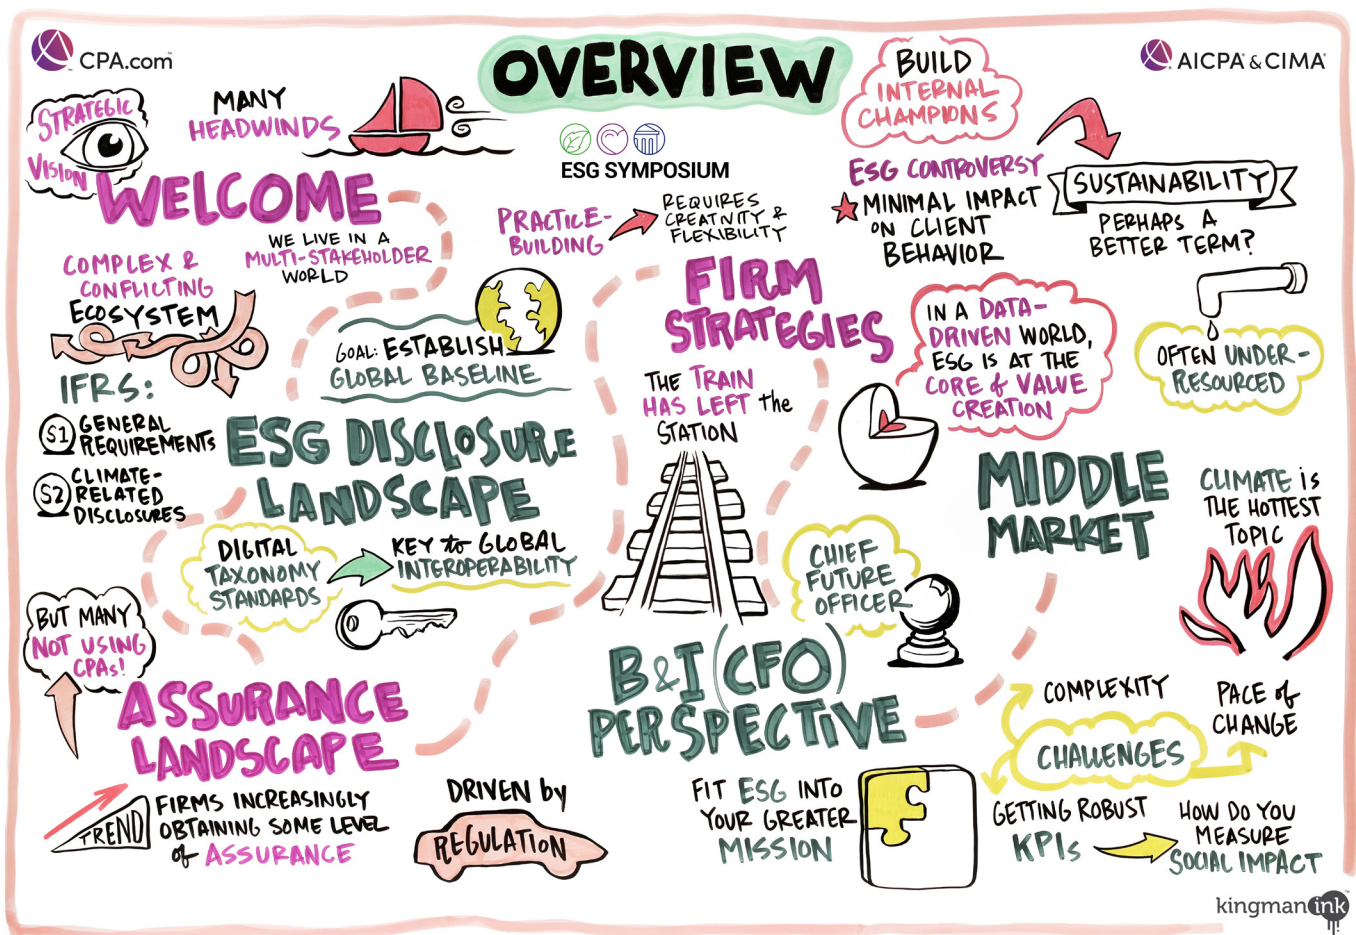 CPA.com
OVERVIEW
ESG SYMPOSIUM
AICPA & CIMA
STRATEGIC
VISION
MANY
HEADWINDS
WELCOME
WE LIVE IN A
MULTI-STAKEHOLDER
WORLD
COMPLEX &
CONFLICTING
ECOSYSTEM
GOAL: ESTABLISH
GLOBAL BASELINE
IFRS:
S1 GENERAL
REQUIREMENTS
S2 CLIMATE-
RELATED
DISCLOSURES
ESG DISCLOSURE
LANDSCAPE
DIGITAL
TAXONOMY
STANDARDS
KEY to GLOBAL
INTEROPERABILITY
BUT MANY
NOT USING
CPAs!
ASSURANCE
LANDSCAPE
TREND
FIRMS INCREASINGLY
OBTAINING SOME LEVEL
of ASSURANCE
DRIVEN by
REGULATION
PRACTICE-
BUILDING
REQUIRES
CREATIVITY &
FLEXIBILITY
FIRM
STRATEGIES
THE TRAIN
HAS LEFT the
STATION
BUILD
INTERNAL
CHAMPIONS
ESG CONTROVERSY
MINIMAL IMPACT
ON CLIENT
BEHAVIOR
SUSTAINABILITY
PERHAPS A
BETTER TERM?
IN A DATA-
DRIVEN WORLD,
ESG IS AT THE
CORE of VALUE
CREATION
OFTEN UNDER-
RESOURCED
MIDDLE
MARKET
CLIMATE is
THE HOTTEST
TOPIC
CHIEF
FUTURE
OFFICER
B&I (CFO)
PERSPECTIVE
FIT ESG INTO
YOUR GREATER
MISSION
COMPLEXITY
PACE of
CHANGE
CHALLENGES
GETTING ROBUST
KPIs
HOW DO YOU
MEASURE
SOCIAL IMPACT
kingman ink